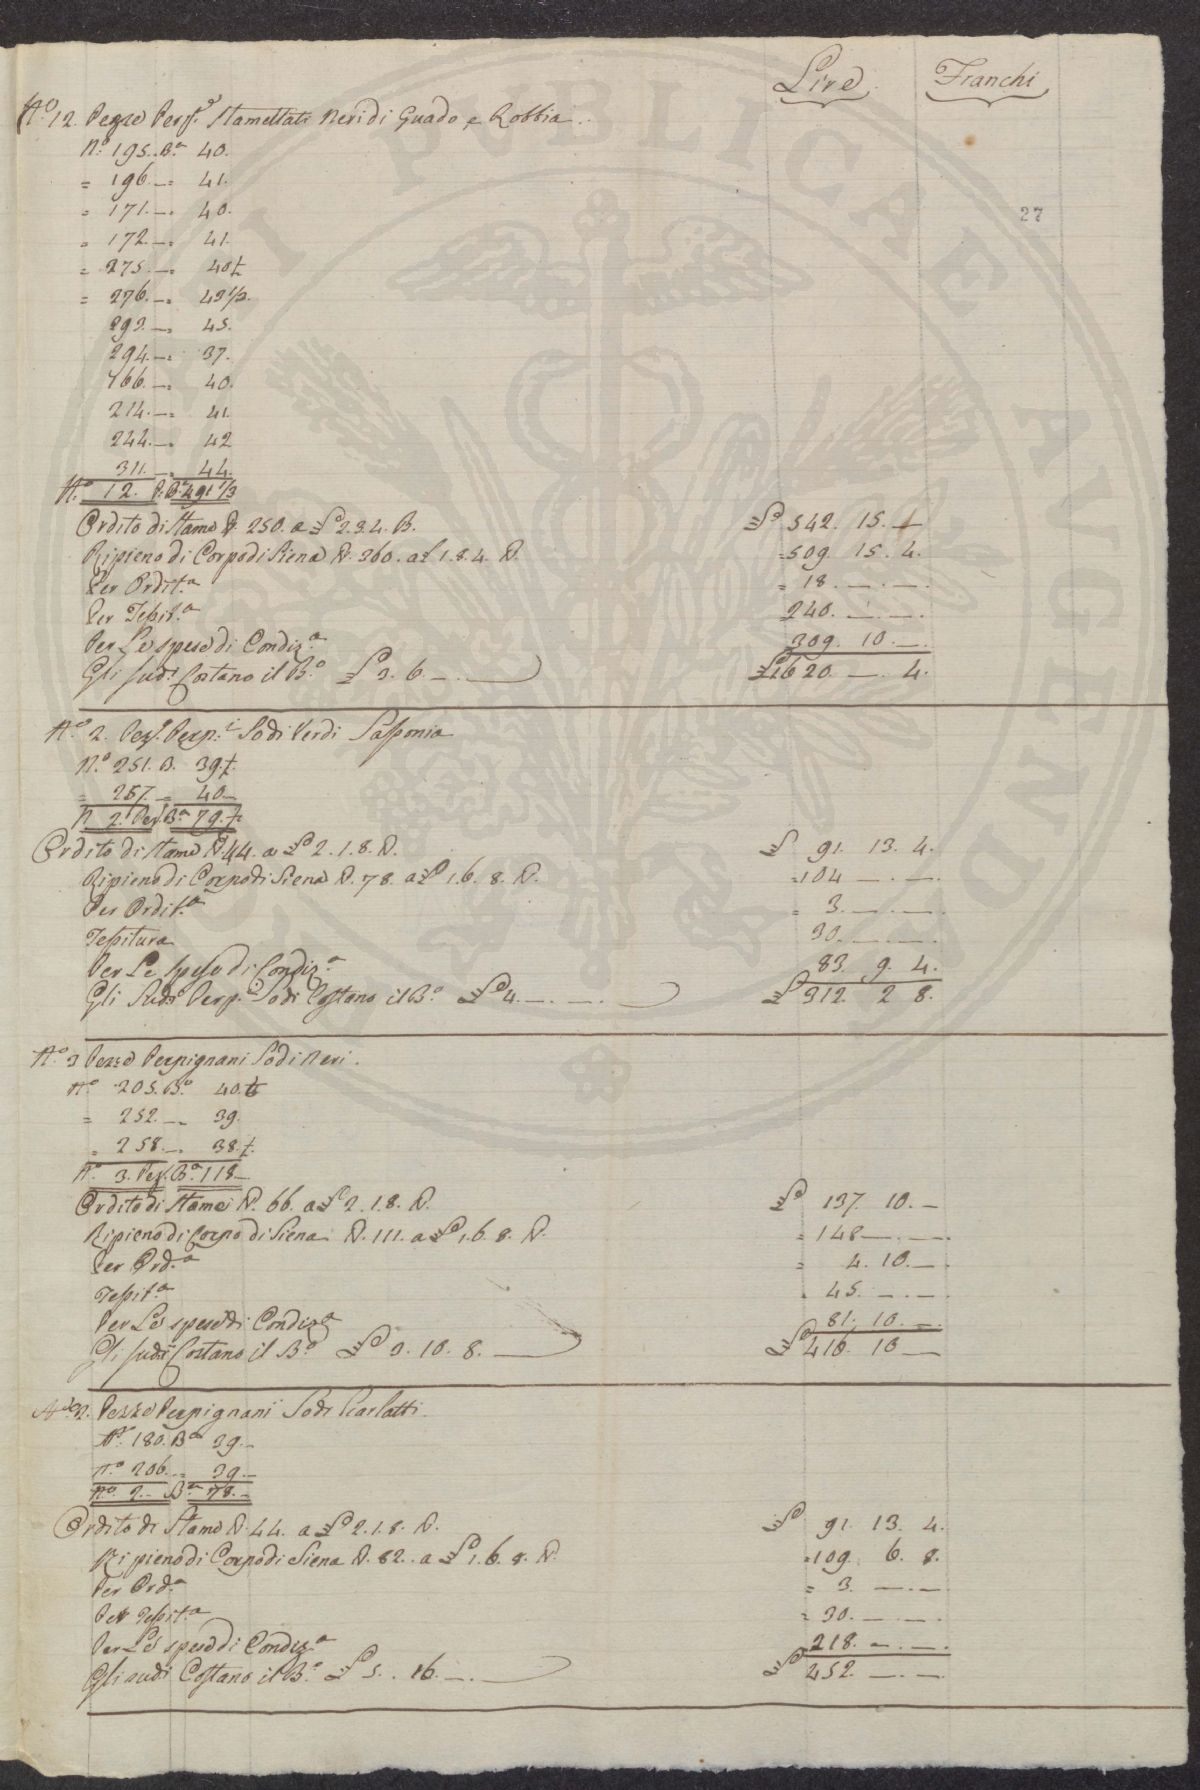 Lire Franchi
N.º 12. Pezze Perp.i Stamettati Neri di Guado e Robbia.
27
Nº 195. B.a 40.
= 196. — = 41.
= 171. — = 40.
= 172. — = 41.
= 275. — = 40½
= 276. — = 42½.
293. — = 45.
294. — = 37.
166. — = 40.
214. — = 41.
244. — = 42
311. — = 44.
N.º 12. P. B.a 491⅓
Ordito di Stame ℔. 250. a £ 2.3.4. ℔. £ 542. 15. —
Ripieno di Corpo di Siena ℔. 360. a £ 1.8.4. ℔. = 509. 15. 4.
Per Ordit.a = 18. — . — .
Per Tessit.a 240. — . — .
Per Le spese di Condiz.a 309. 10. — .
Gli sud.i Costano il B.º £ 3. 6. — . £ 1620. — . 4.
N.º 2. Pez. Perp.i Sodi Verdi Sassonia
N.º 251. B. 39.½.
= 257. — = 40. —
N 2. Pez. B.a 79.½
Ordito di Stame ℔ 44. a £ 2.1.8. ℔. £ 91. 13. 4.
Ripieno di Corpo di Siena ℔. 78. a £ 1.6.8. ℔. = 104 — . — .
Per Ordit.a = 3. — . — .
Tessitura 30. — . — .
Per Le spese di Condiz.a 83. 9. 4.
Gli Sud.i Perp.i Sodi Costano il B.º £ 4. — . — . £ 312. 2 8.
N.º 3 Pezze Perpignani Sodi Neri.
N.º 205. B.a 40.½
= 252. — = 39.
= 258. — = 38.½.
N.º 3. Pez. B.a 118 —
Ordito di Stame ℔. 66. a £ 2.1.8. ℔. £ 137. 10. —
Ripieno di Corpo di Siena ℔. 111. a £ 1.6.8. ℔. = 148 — . — .
Per Ord.a = 4. 10. — .
Tessit.a = 45. — . — .
Per Le spese di Condiz.a 81. 10. — .
Gli sud.i Costano il B.º £ 3. 10. 8. £ 416. 10 —
N.º 2. Pezze Perpignani Sodi Scarlatti.
N.º 180. B.a 39. —
N.º 206. — = 39. —
N.º 2. — B.a 78. —
Ordito di Stame ℔. 44. a £ 2.1.8. ℔. £ 91. 13. 4.
Ripieno di Corpo di Siena ℔. 82. a £ 1.6.8. ℔. = 109. 6. 8.
Per Ord.a = 3. — . — .
Per Tessit.a = 30. — . — .
Per Le spese di Condiz.a 218. — . — .
Gli sudi Costano il B.º £ 5. 16. — . £ 452. — . — .